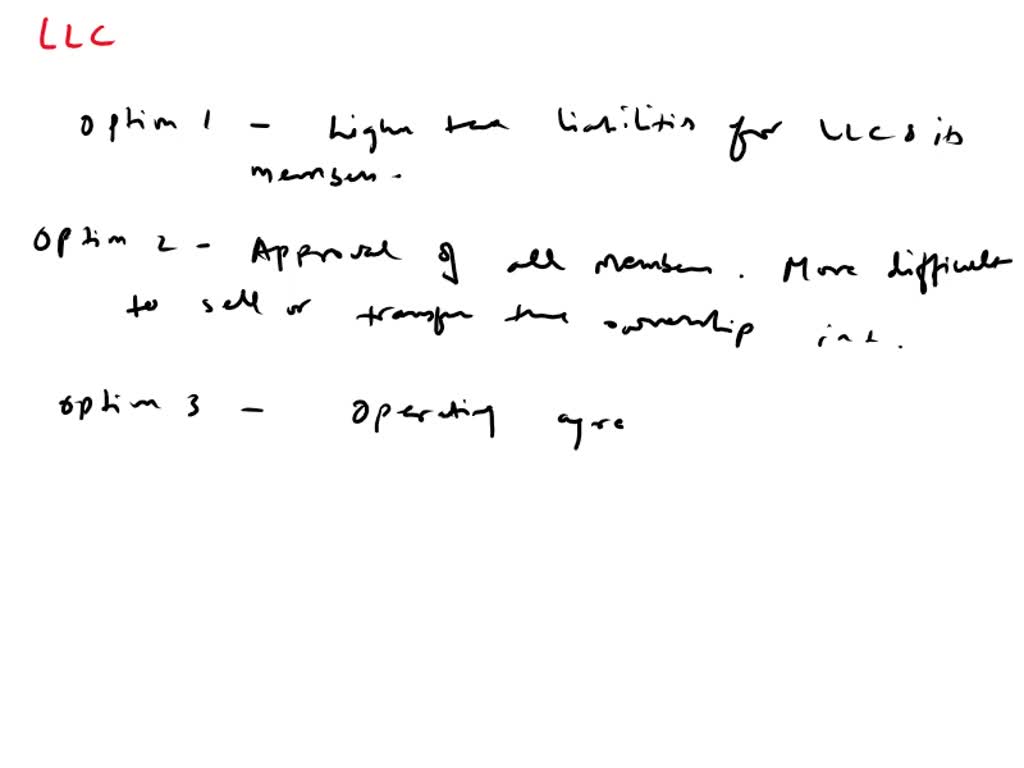 LLC
option 1 - higher tax liabilities for LLC & its
members.
Option 2 - Approval of all members. More difficult
to sell or transfer the ownership int.
option 3 - Operating agre